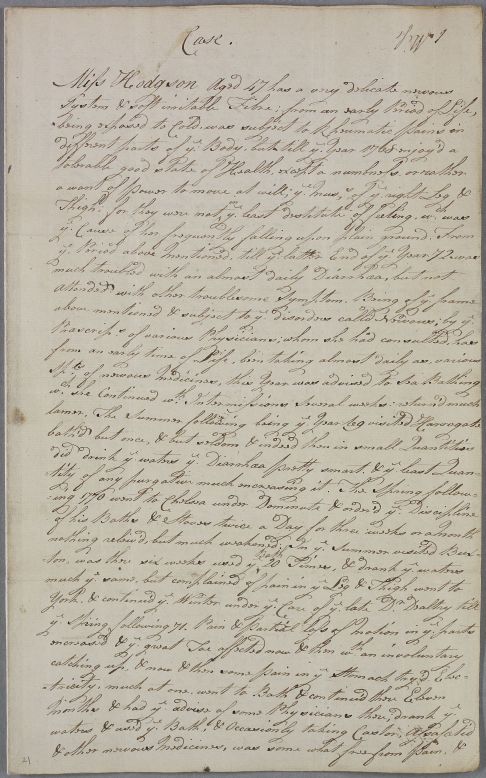 Case.
No 1
Miss Hodgson Aged 47 has a very delicate nervous
System & soft irritable Fibre; from an early Period of Life,
being exposed to Cold, was subject to Rheumatic pains in
different parts of ye Body, but till ye Year 1768 enjoy'd a
tolerable good state of Health, except a numbness or rather
a want of power to move at will ye Mus.s of ye right Leg &
Thigh, for they were not in ye least destitute of feeling, wch was
ye Cause of her frequently falling upon plain ground. From
ye Period above mentioned, till ye latter End of ye Year 72 was
much troubled with an almost daily Diarrhæa, but not
attended with other troublesome Symptom. Being of ye frame
above mentioned & subject to ye disorders called Nervous, by ye
Prescrips of various Physicians, whom she had consulted, has
from an early time of Life, bin taking almost daily as various
of nervous Medicines, this Year was advised to Sea Bathing
wch she Continued wth Intermissions Several weeks: return'd much
lamer, The Summer following being ye Year 69 visited Harrogate
bath'd but once, & but seldom & indeed then in small Quantities
did drink ye waters ye Diarrhæa pretty smart, & ye least Quan-
-tity of any purgative much encreasing it. The Spring follow-
-ing 1770 went to Chelsea under Dominicite & order'd ye Discipline
of his Baths & Stoves twice a Day for three weeks or a month
nothing reliev'd, but much weakened; In ye Summer visited Bux-
ton, was there six weeks used ye Bath 20 Times, & drank ye waters
much ye same, but complained of pain in ye Leg & Thigh, went to
York, & continued ye Winter under ye Care of ye late Dr Dealtry till
ye Spring following 71. Pain & partial loss of motion in ye parts
encreased & ye great Toe affected now & then wth an involuntary
catching up, & now & then some pain in ye Stomach try'd Elec-
-tricity, much at one, went to Bath & continued there Eleven
Months & had ye advise of some Physicians there, drank ye
waters & used ye Bath, & Occasionly taking Castor, Assafœtid
& other nervous Medicines, was some what free from Pain, &
21